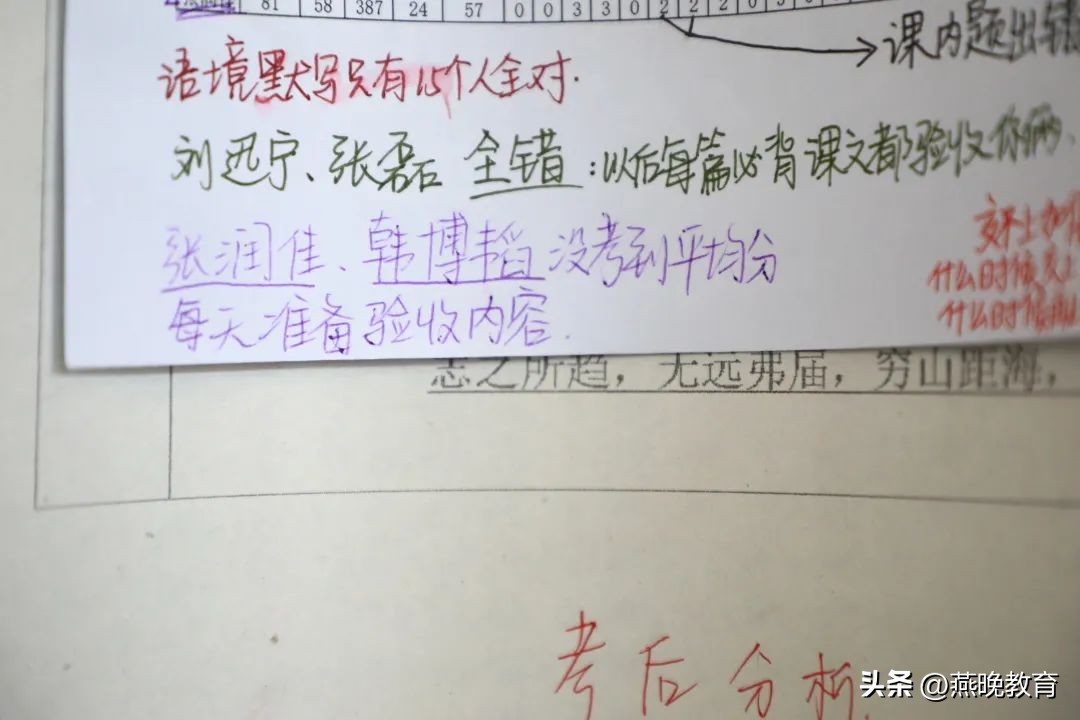 81 58 387 24 57 0 0 3 3 0 2 2 2 0
课内题出错
语境默写只有15个人全对.
刘迅宁、张磊 全错:以后每篇必背课文都验收你俩、
张润佳、韩博韬没考到平均分
每天准备验收内容.
什么时候
什么时候
志之所趋，无远弗届，穷山距海，
考后分析
头条 @燕晚教育